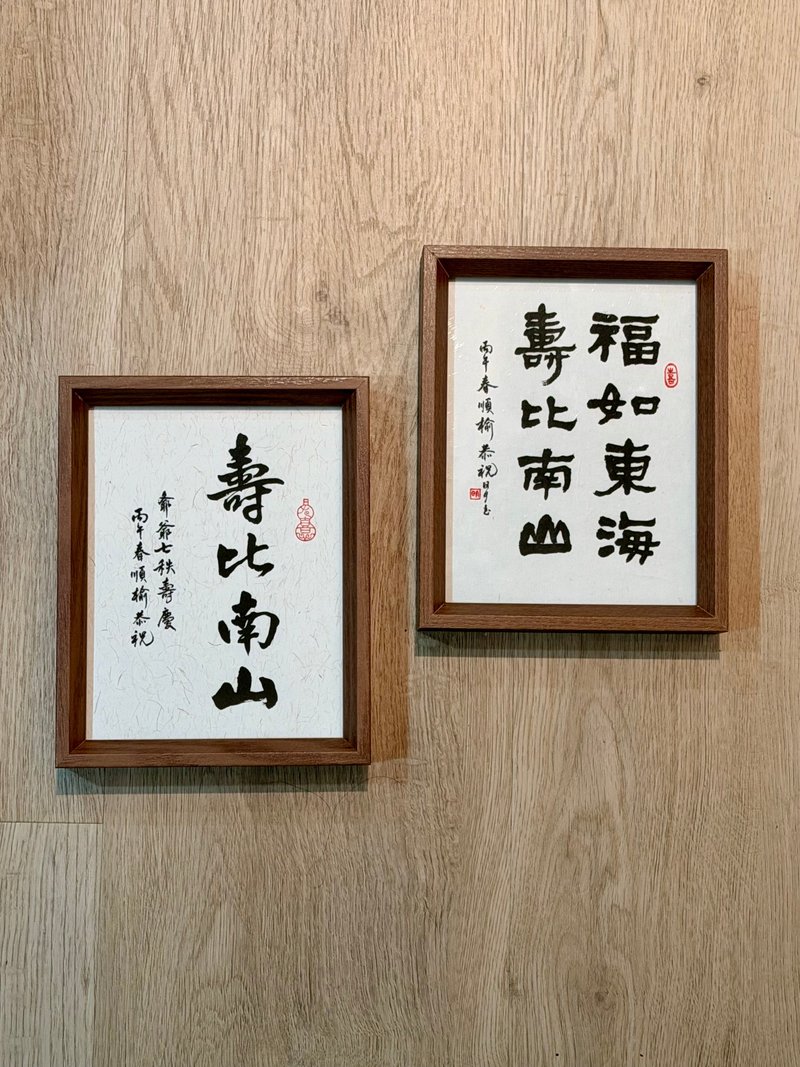 壽比南山
爺爺七秩壽慶
丙午春順榆恭祝
福如東海
壽比南山
丙午春順榆恭祝